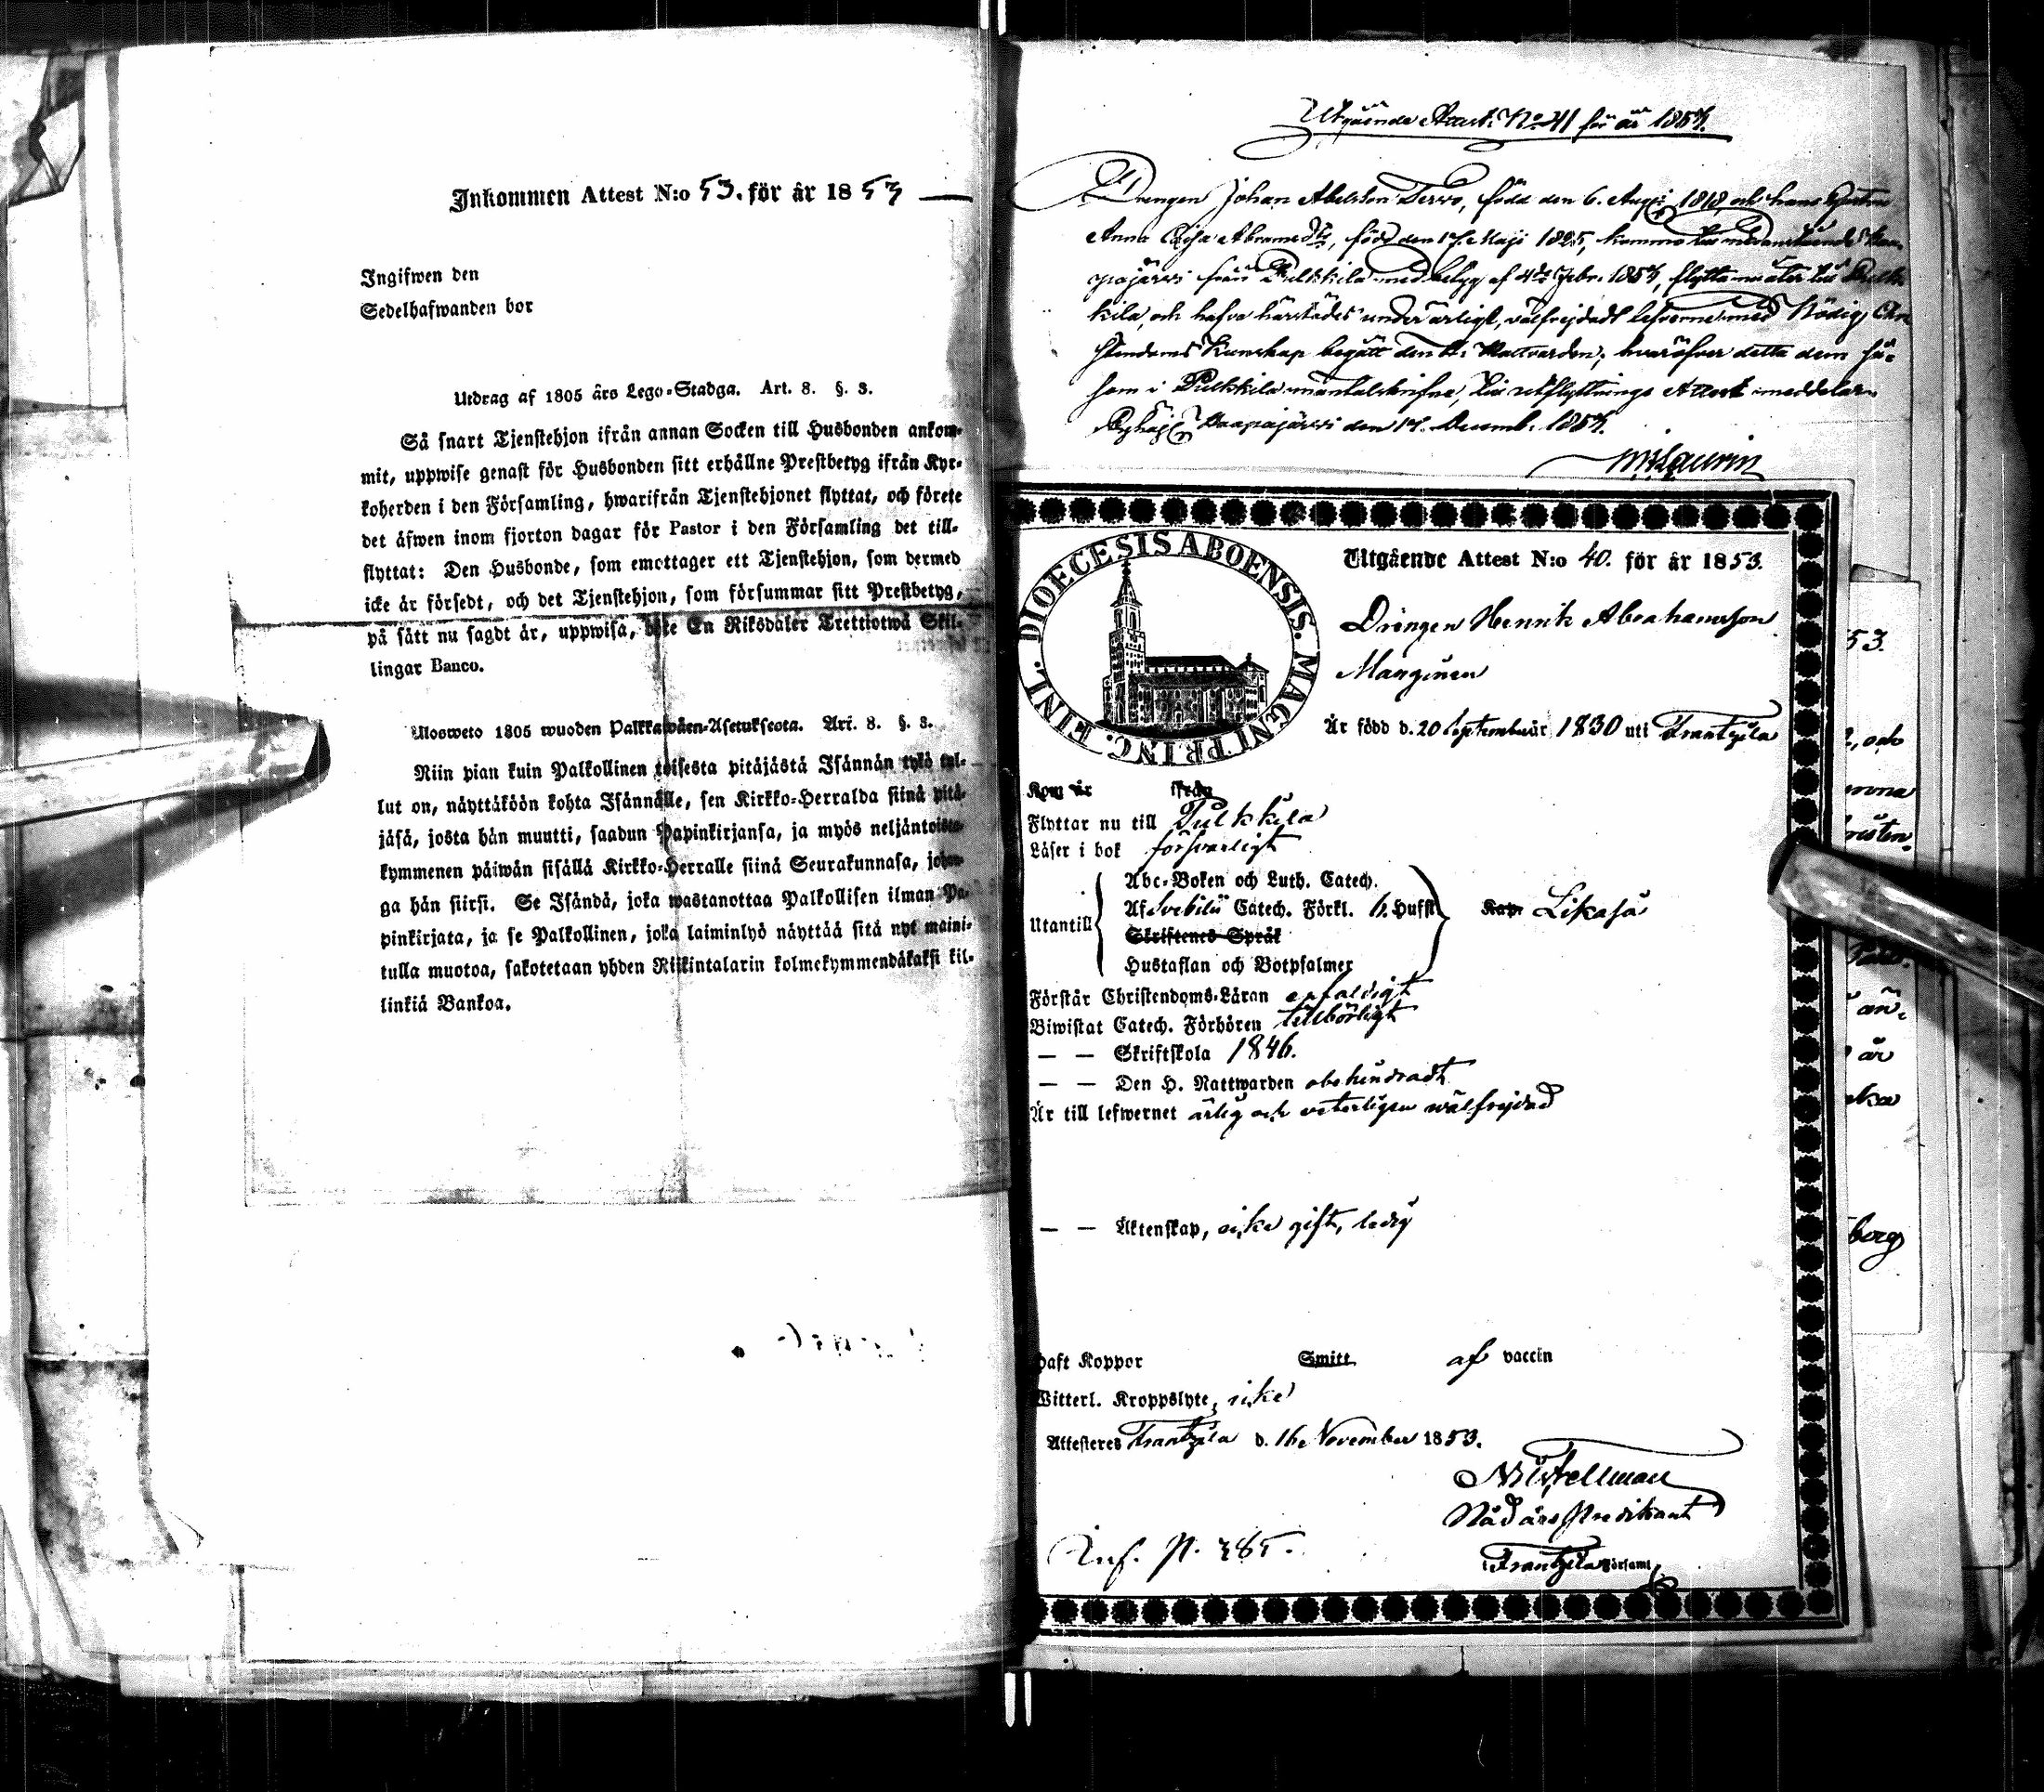 Inkommen Attest N:o 53. för år 1853
Ingifwen den
Sedelhafwanden bor
Utdrag af 1805 års Lego-Stadga. Art. 8. §. 3.
Så snart Tjenstehjon ifrån annan Socken till Husbonden ankom-
mit, uppwise genast för Husbonden sitt erhållne Prestbetyg ifrån Kyr-
koherden i den Församling, hwarifrån Tjenstehjonet flyttat, och förete
det åfwen inom fjorton dagar för Pastor i den Församling det till-
flyttat: Den Husbonde, som emottager ett Tjenstehjon, som dermed
icke är försedt, och det Tjenstehjon, som försummar sitt Prestbetyg,
på sätt nu sagdt är, uppwisa, böte En Riksdaler Trettiotwå Skil-
lingar Banco.
Ulosweto 1805 wuoden Palkkawäen-Asetuksesta. Art. 8. §. 3.
Niin pian kuin Palkollinen toisesta pitäjästä Isännän tykö tul-
lut on, näyttäköön kohta Isännälle, sen Kirkko-Herralda siinä pitä-
jäsä, josta hän muutti, saadun Papinkirjansa, ja myös neljäntoista-
kymmenen päiwän sisällä Kirkko-Herralle siinä Seurakunnasa, johon-
ga hän siirsi. Se Isändä, joka wastanottaa Palkollisen ilman Pa-
pinkirjata, ja se Palkollinen, joka laiminlyö näyttää sitä nyt maini-
tulla muotoa, sakotetaan yhden Riikintalarin kolmekymmendäkaksi kil-
linkiä Bankoa.
Utgående Attest. No 41 för år 1854.
Drengen Johan Abelsson Tervo, född den 6. Aug. 1818, och hans hustru
Anna Caisa Abramsdtr, född den 17. Maji 1825, komma till
pajärvi från Pulkkila med betyg af 4de Febr. 1854, flytta nu åter till Pulk-
kila, och hafva härstädes under ärligt, välfrejdadt lefverne med nödig Chri-
stendoms kunskap begått den H. Nattvarden; hvaröfver detta dem så-
som i Pulkkila mantalskrifne, till utflyttnings Attest meddelas.
Haapajärvi den 17. Decemb. 1854.
Laurin
DIOECESIS ABOENSIS. MAGNI PRINC. FINL.
Utgående Attest N:o 40. för år 1853.
Drängen Henrik Abrahamsson
Manginen
Är född d. 20 September år 1830 uti Frantzila
Kom år ifrån
Flyttar nu till Pulkkila
Läser i bok försvarligt
Utantill
Abc-Boken och Luth. Catech.
Af Svebilii Catech. Förkl. 6. Hufst.
Skriftenes Språk
Hustaflan och Botpsalmer
Kap. Likaså
Förstår Christendoms-Läran enfaldigt
Biwistat Catech. Förhören tillbörligt
— — Skriftskola 1846.
— — Den H. Nattwarden obehindradt
Är till lefwernet ärlig och veterligen wälfrejdad
— — Äktenskap, icke gift, ledig
Haft Koppor Smitt af vaccin
Witterl. Kroppslyte, icke
Attesteras Frantzila d. 16 November 1853.
Nådårs Predikant
i Frantzila Församl.
Inf. P. 385.
53.
och
risten.
år
borg